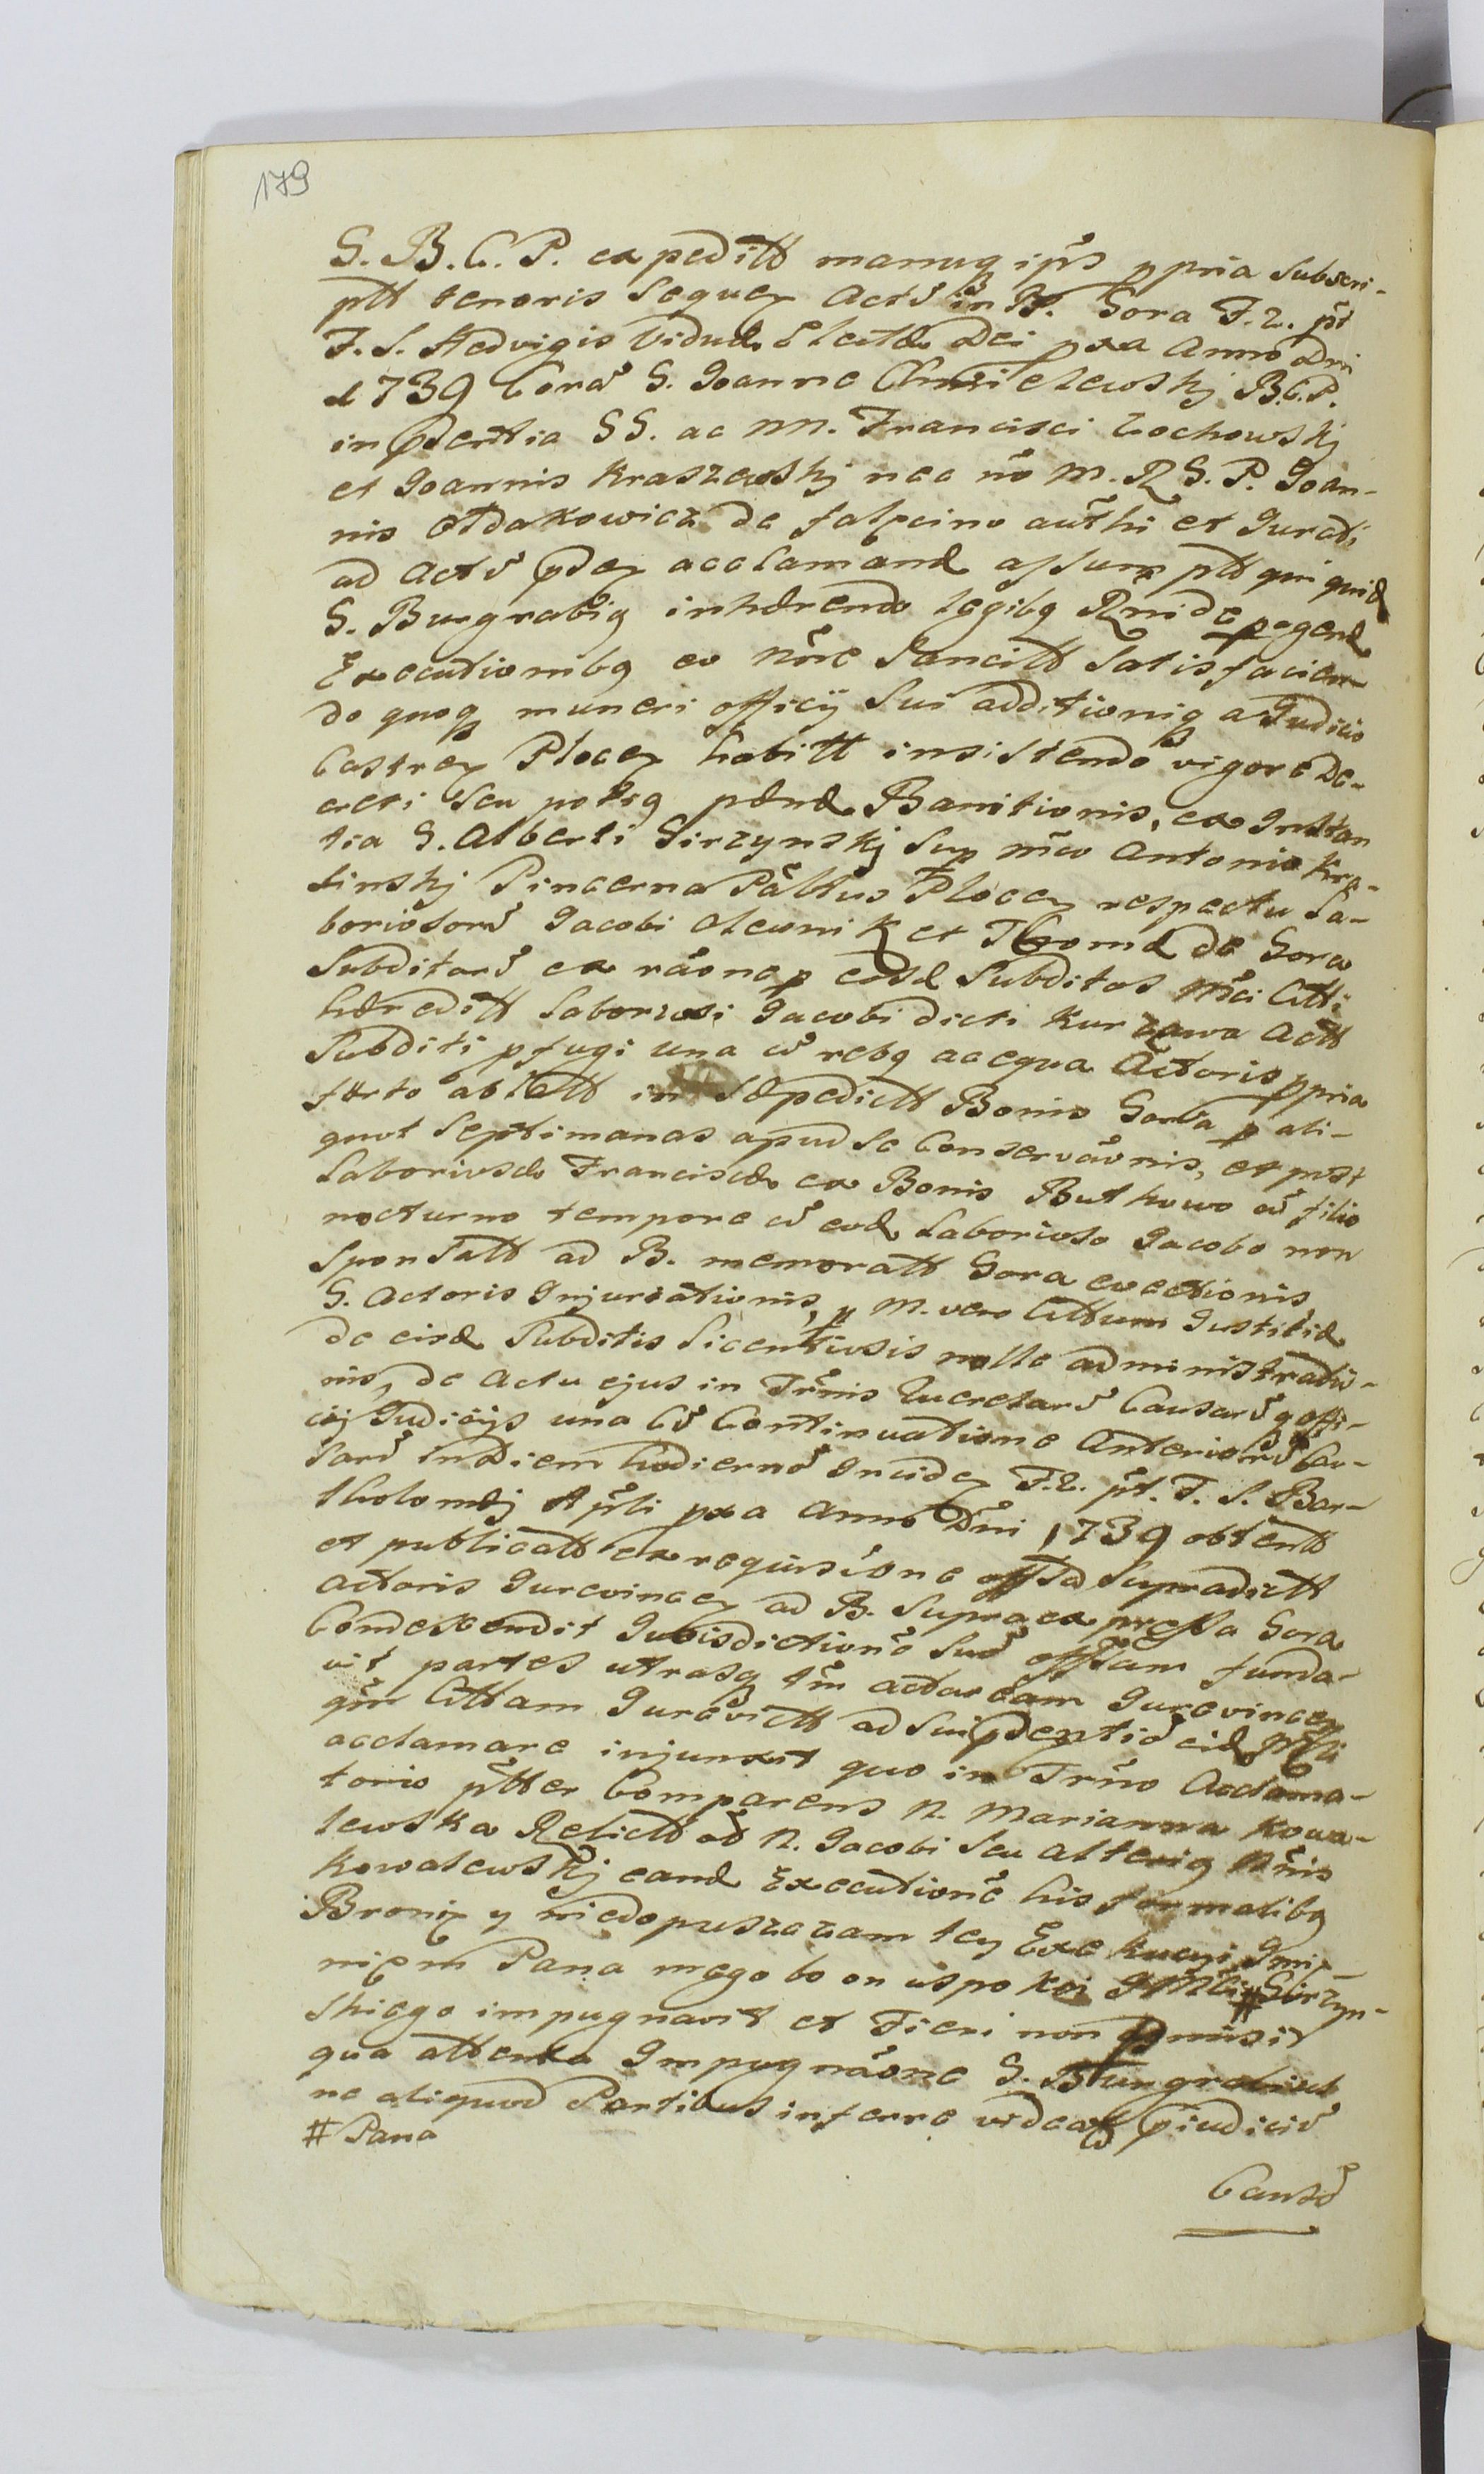 179
S. B. C. P. expeditt manuq ips ppria subscri-
ptt tenoris sequen Actũ in B. Gora F. 2. pt
F. S. Hedvigis Viduæ Electæ Dei pxa Anno Dni
1739 Corã G. Joanne Chmielewskj B.C.P.
in pdentia GG. ac NN. Francisci Cochowskj
et Joannis Kraszewskj nec nõ M. R G. P. Joan-
nis Adakowicz de falpcino authi et Jurati
ad Actũ pden acclamand assumptt qui quid
G. Burgrabiq inhærendo legibq Rni de pagend
Executionibq eo nõie Sancitt Satisfacien-
do quoq muneri officij Sui additioniq a Judicio
Castren Plocen habitt insistendo vigore De-
creti seu potiq pænæ Banitionis, ex Instan
tia G. Alberti Girzynskj sup mco Antonio Kra-
sinskj Pincerna Palttus Plocen respectu La-
boriosorũ Jacobi Olewnik et Thomæ de Gora
Subditorũ ex raõne p eosd Subditos Mci Citti
hæreditt Laboriosi Jacobi dicti Kurzawa Actt
Subditi pfugi una cũ rebq ac equa Actoris ppria
furto ablatt in Sæpedictt Bonis Gora p ali-
quot Septimanas apud se Conservaõnis, et post
Laboriosæ Franciscæ ex Bonis Buthowo cũ filio
nocturno tempore cũ eod Laborioso Jacobo non
Sponsatt ad B. memoratt Gora evectionis
G. Actoris Injuriationis, p M. vero Cittum Justitiæ
de eisd Subditis Licentiosis nolle administratio-
nis, de Actu ejus in Trnis Querelarũ Causarũq offi-
cij Judicijs una Cũ Continuatione Anteriorũ Cau-
sarũ in diem hodiernõ Inciden F. 2. pt. F. S. Bar-
tholomæj Apli pxa Anno Dni 1739 obtentt
et publicatt ex requisitione offsa Supradictt
Actoris Jurevincen ad B. Supra expressa Gora
Condescendit Jurisdictionẽ Suã offsam funda-
vit partes utrasq tm actoream Jurevincen
qm Cittam Jurevictt ad Sui pdentiã eid Mli
acclamare injunxit quo in Trno Acclama-
torio ptter Comparens N. Marianna Kowa-
lewska Relictt od N. Jacobi seu alteriq Nnis
Kowalewskj eand Executionẽ his formalibq
Bronię y niedopuszczam tey Exekucyi Jmie-
niem Pana mego bo on uspokoi JMCi # Girzyn-
skiego impugnavit et Fieri non pmisit
qua attenta Impugnaõne G. Burgrabius
ne aliquod Partibus inferre videaf pjudiciũ
# Pana
Causã